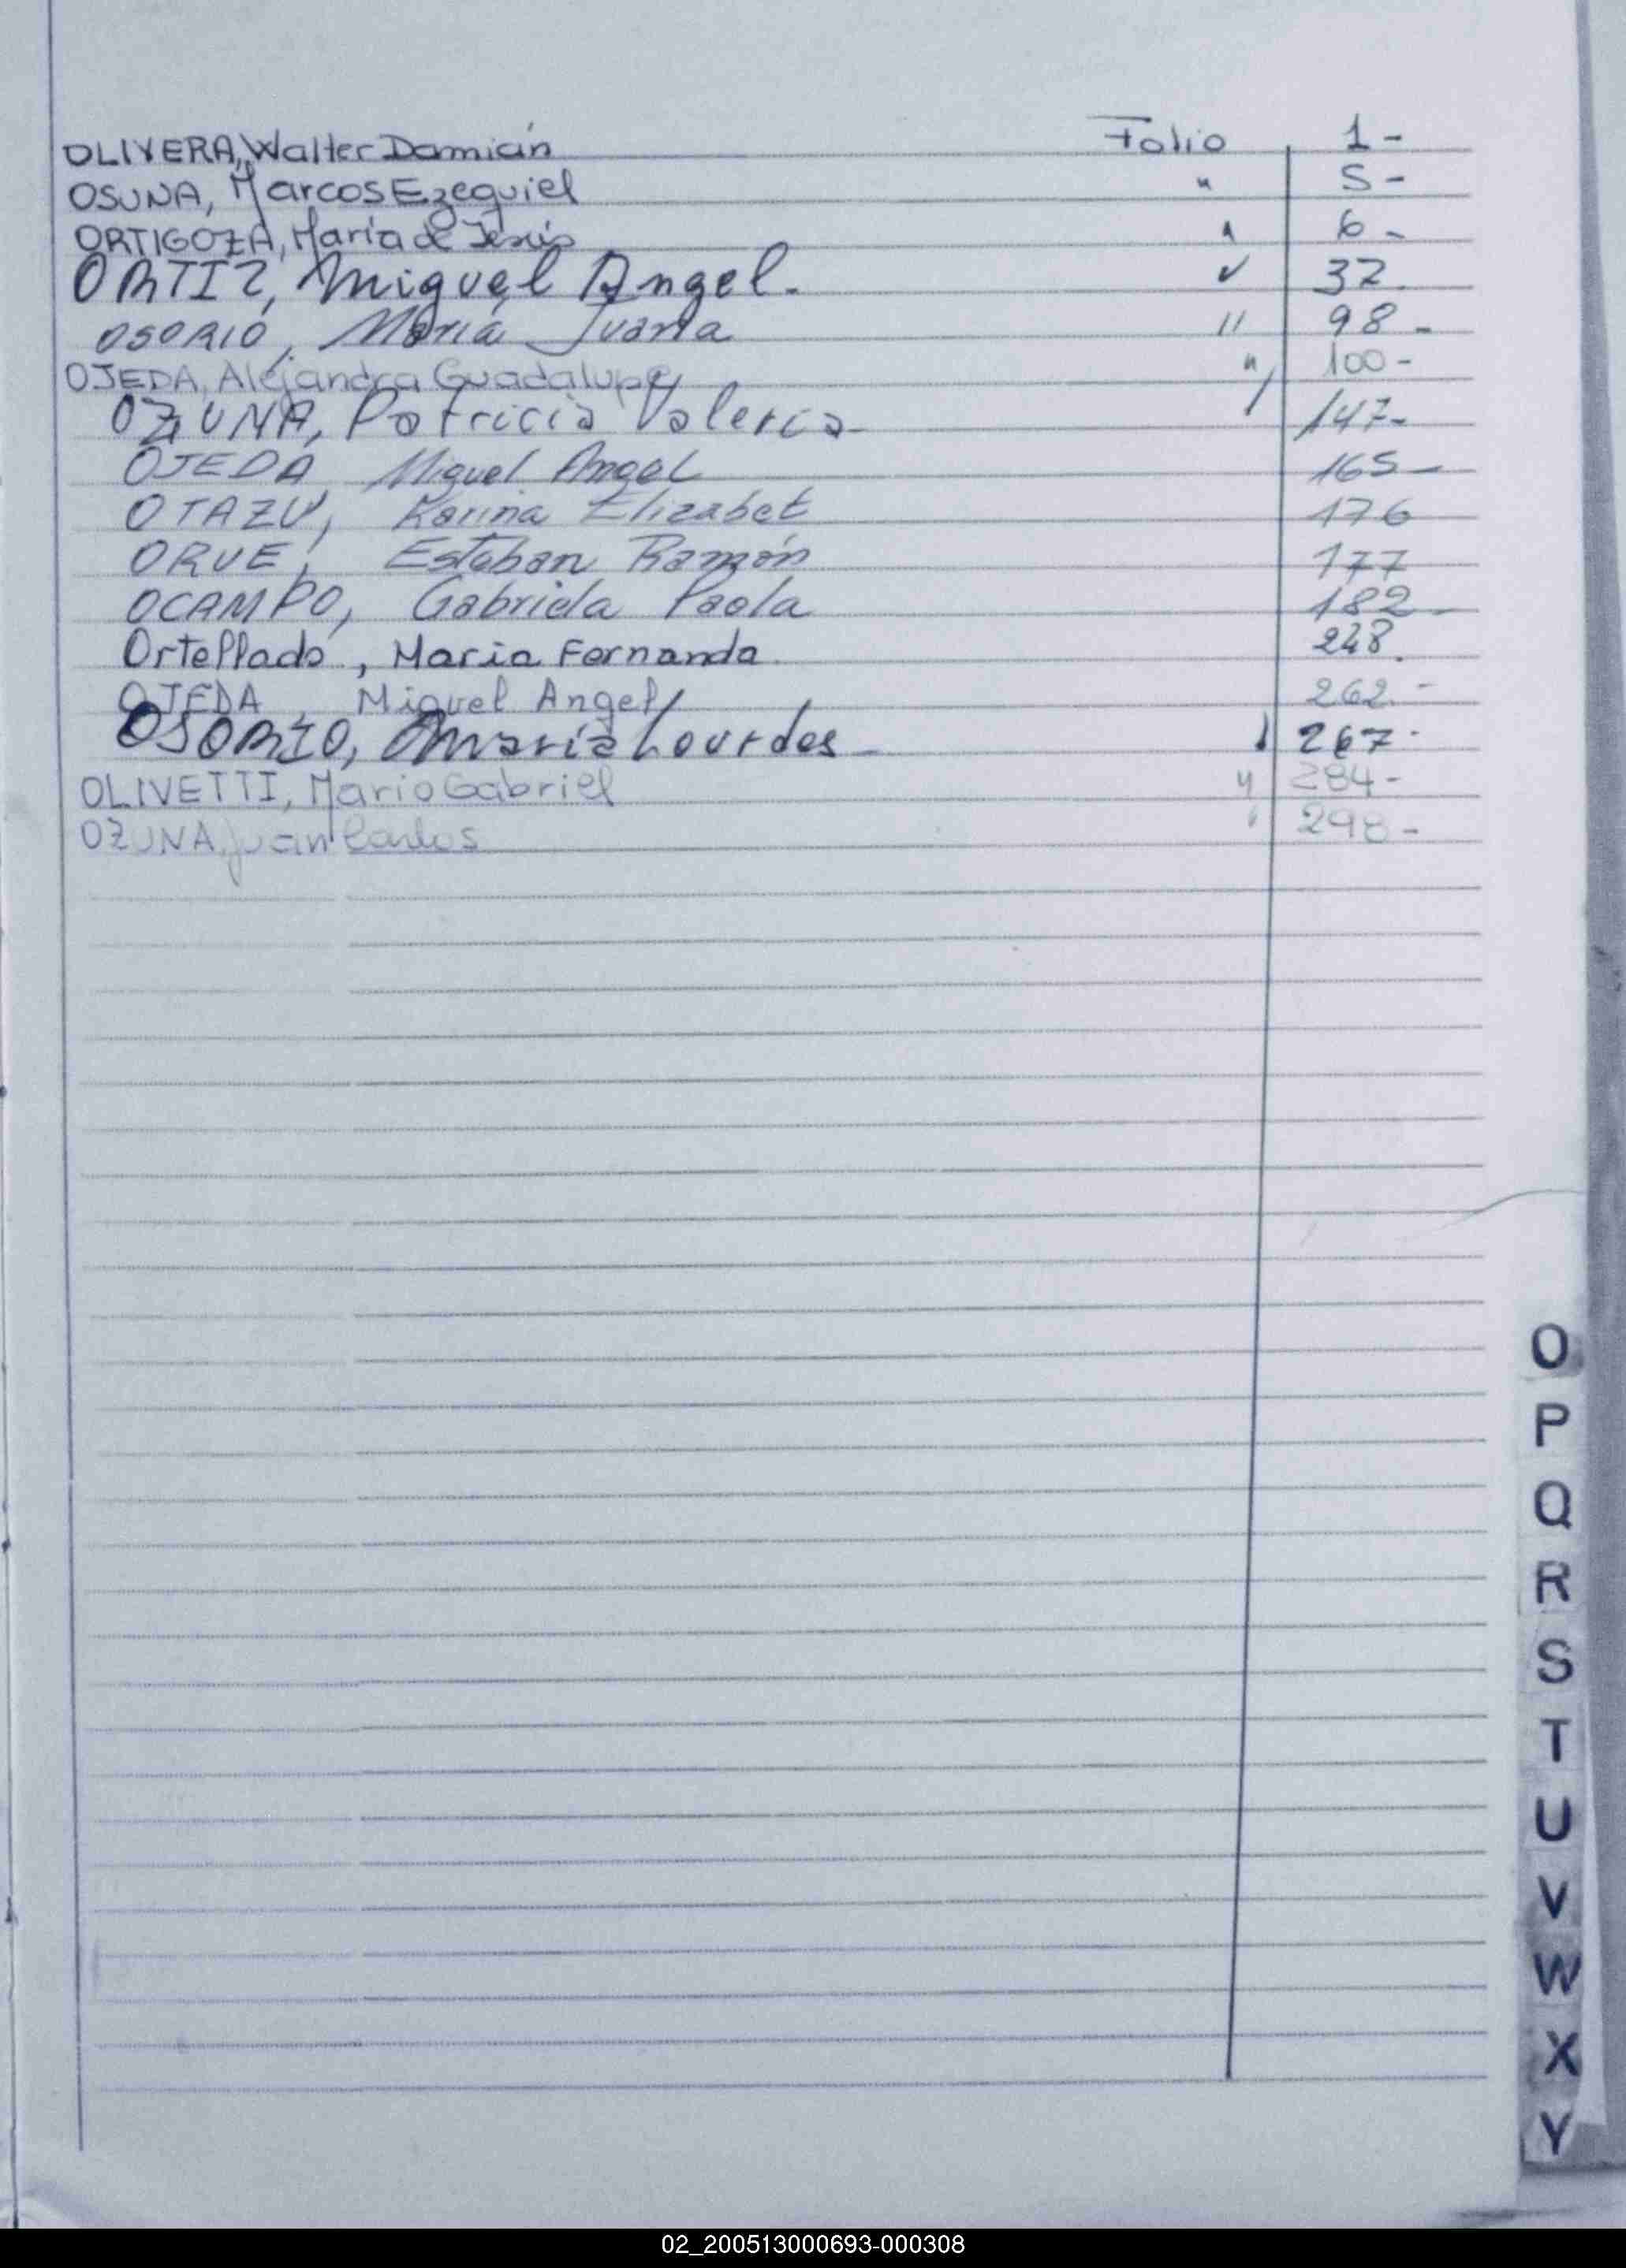 OLIVERA, Walter Damián Folio 1-
OSUNA, Marcos Ezequiel " 5-
ORTIGOZA, María de Jesús " 6-
ORTIZ, Miguel Angel. " 37.
OSORIO, María Juana " 98-
OJEDA, Alejandra Guadalupe " 100-
OZUNA, Patricia Valeria- / 147-
OJEDA Miguel Angel 165-
OTAZU, Karina Elizabet 176
ORUE, Esteban Ramón 177
OCAMPO, Gabriela Paola 182-
Ortellado, Maria Fernanda. 248.
OJEDA, Miguel Angel 262.-
OSORIO, María Lourdes- 267-
OLIVETTI, Mario Gabriel " 284-
OZUNA, Juan Carlos " 298-
O
P
Q
R
S
T
U
V
W
X
Y
02_200513000693-000308